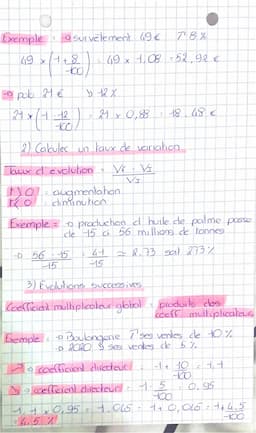 Exemple : → survêtement 49 € ↑ 8 %
49 × (1 + 8/100) = 49 × 1,08 = 52,92 €
→ pub 21 € ↘ 12 %
21 × (1 - 12/100) = 21 × 0,88 = 18,48 €
2) Calculer un taux de variation
Taux d'évolution = Vf - Vi / Vi
T > 0 = augmentation
T < 0 = diminution
Exemple : → production d'huile de palme passe
de 15 à 56 millions de tonnes
→ 56 - 15 / 15 = 41 / 15 ≃ 2,73 soit 273 %
3) Évolutions successives
Coefficient multiplicateur global = produits des
coeff. multiplicateurs
Exemple : → Boulangerie ↑ ses ventes de 10 %
→ 2020 ↘ ses ventes de 5 %
↗ → coefficient directeur = 1 + 10/100 = 1,1
↘ → coefficient directeur = 1 - 5/100 = 0,95
1,1 × 0,95 = 1,045 = 1 + 0,045 = 1 + 4,5/100
= 4,5 %